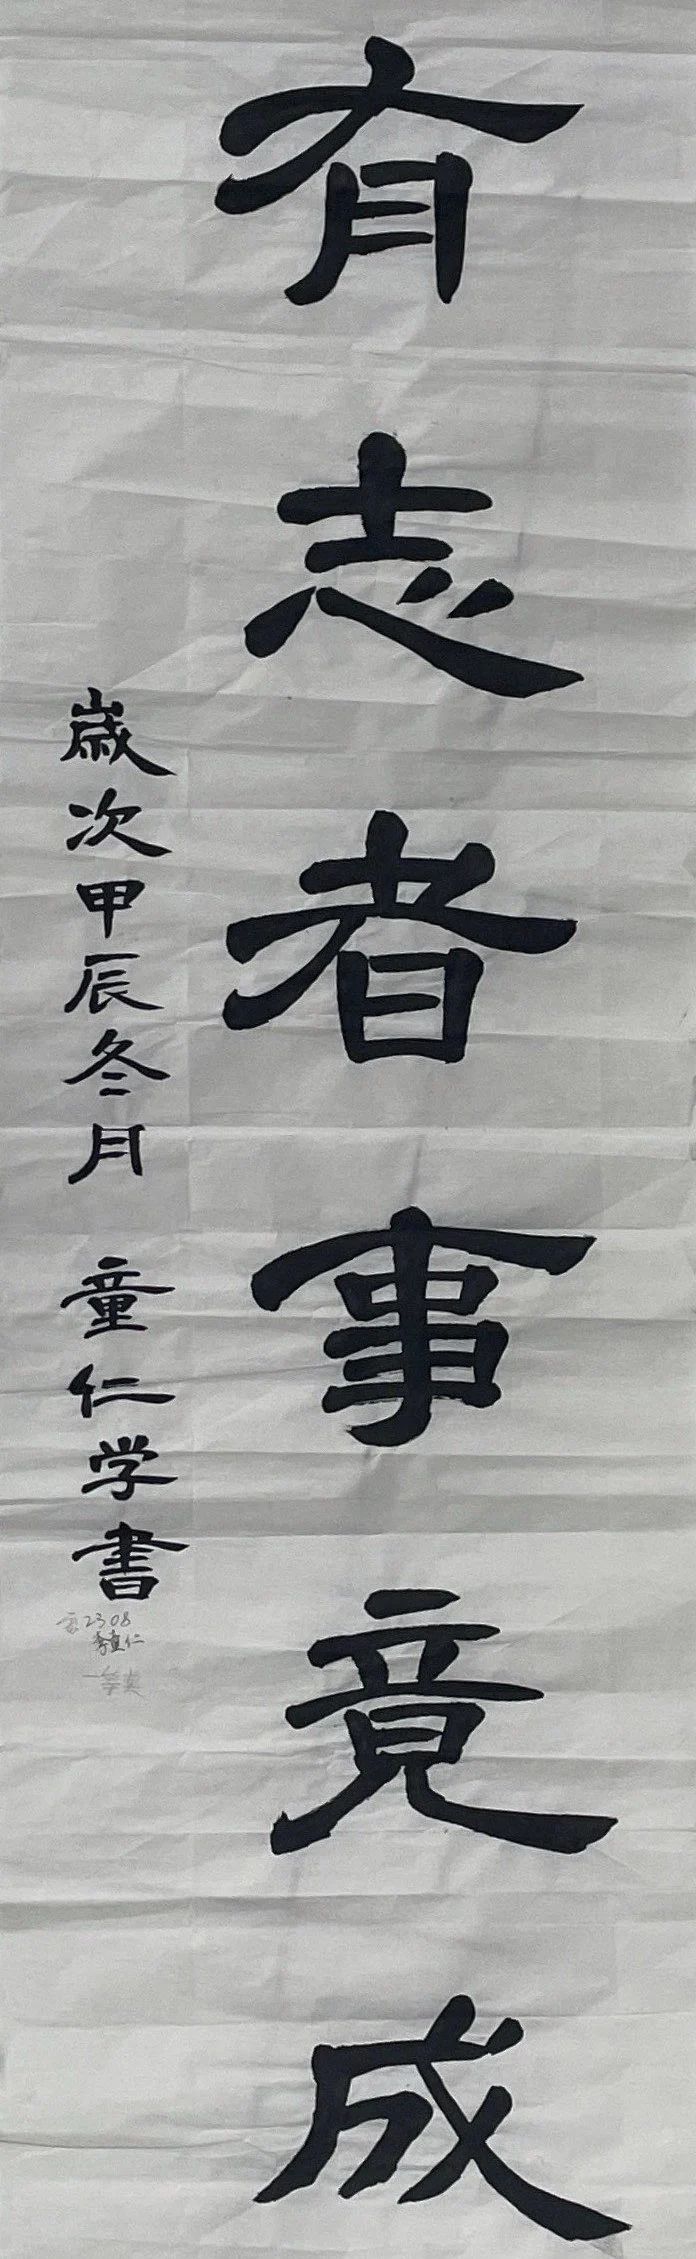 有志者事竟成
歲次甲辰冬月 童仁学書
2308
李童仁
一等奖